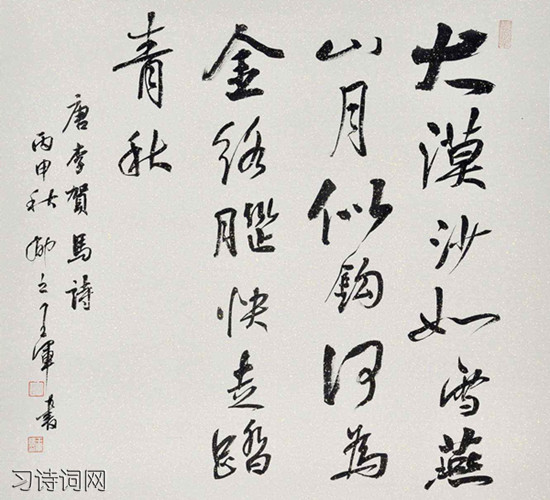 大漠沙如雪燕
山月似鈎何為
金絡腦快走踏
青秋
唐李賀馬詩
丙申秋 書
习诗词网